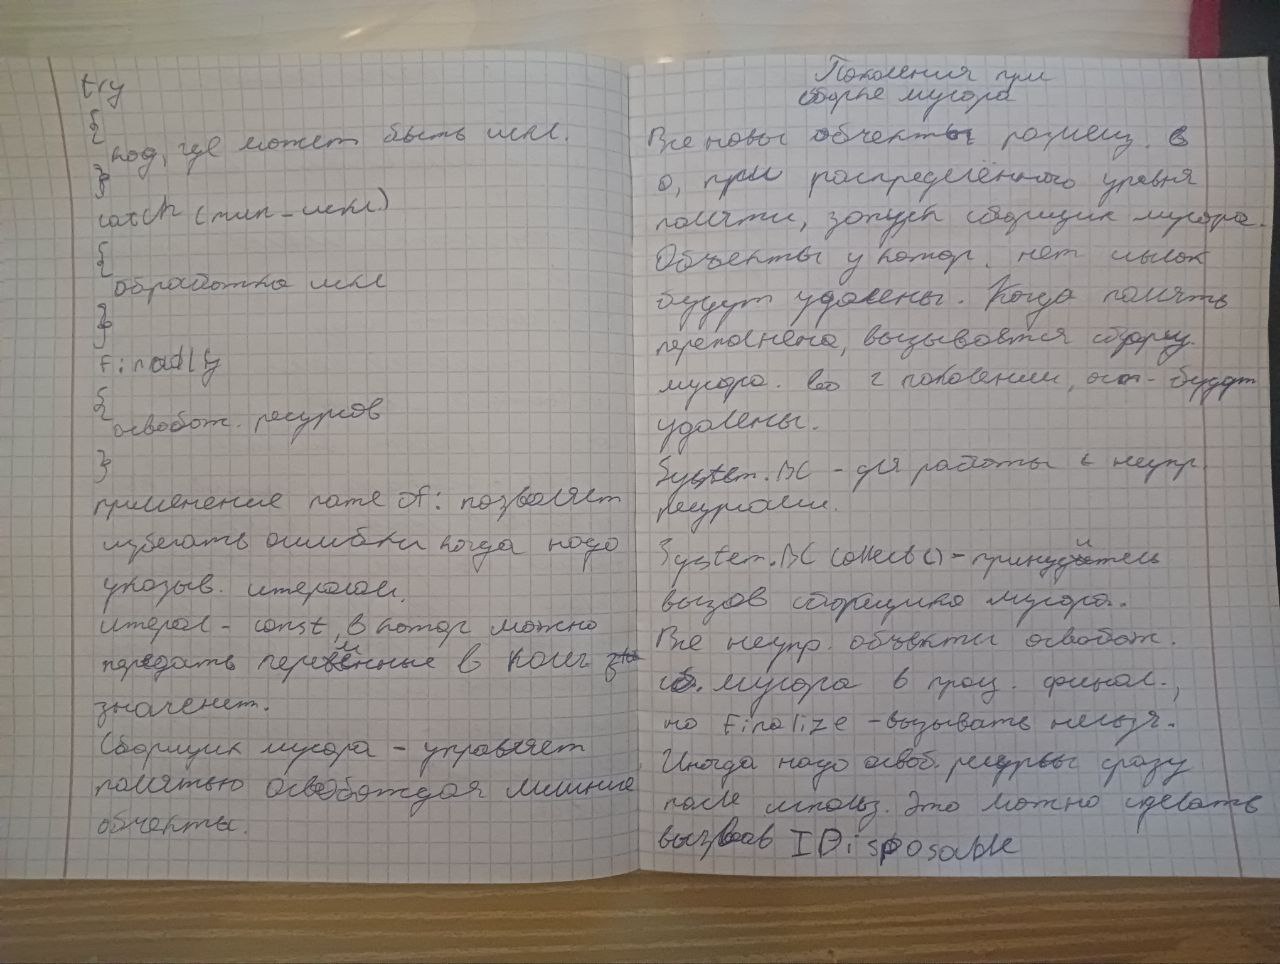 try
{
код, где может быть искл.
}
catch (тип-искл)
{
обработка искл
}
finally
{
освобож. ресурсов
}
применение name of: позволяет
избегать ошибки когда надо
указыв. итерал
итерал - const, в котор можно
передать переменные в
значенет.
Сборщик мусора - управляет
памятью освобождая лишние
объекты.
Поколения при
сборке мусора
Все новы объекты размещ. в
0, при распределённого уровня
памяти, запуск сборщик мусора.
Объекты у котор. нет сылок
будут удалены. Когда память
переполнена, вызывается сборщ.
мусора. 2 поколении, ост- будут
удалены.
System.GC - для работы с неупр.
ресурсами.
System.GC Collect() - принудитель
вызов сборщика мусора.
Все неупр. объекты освобож.
сб. мусора в проц. финал.,
но Finalize - вызывать нельзя.
Иногда надо освоб. ресурсы сразу
после использ. Это можно сделать
вызвав IDisposable